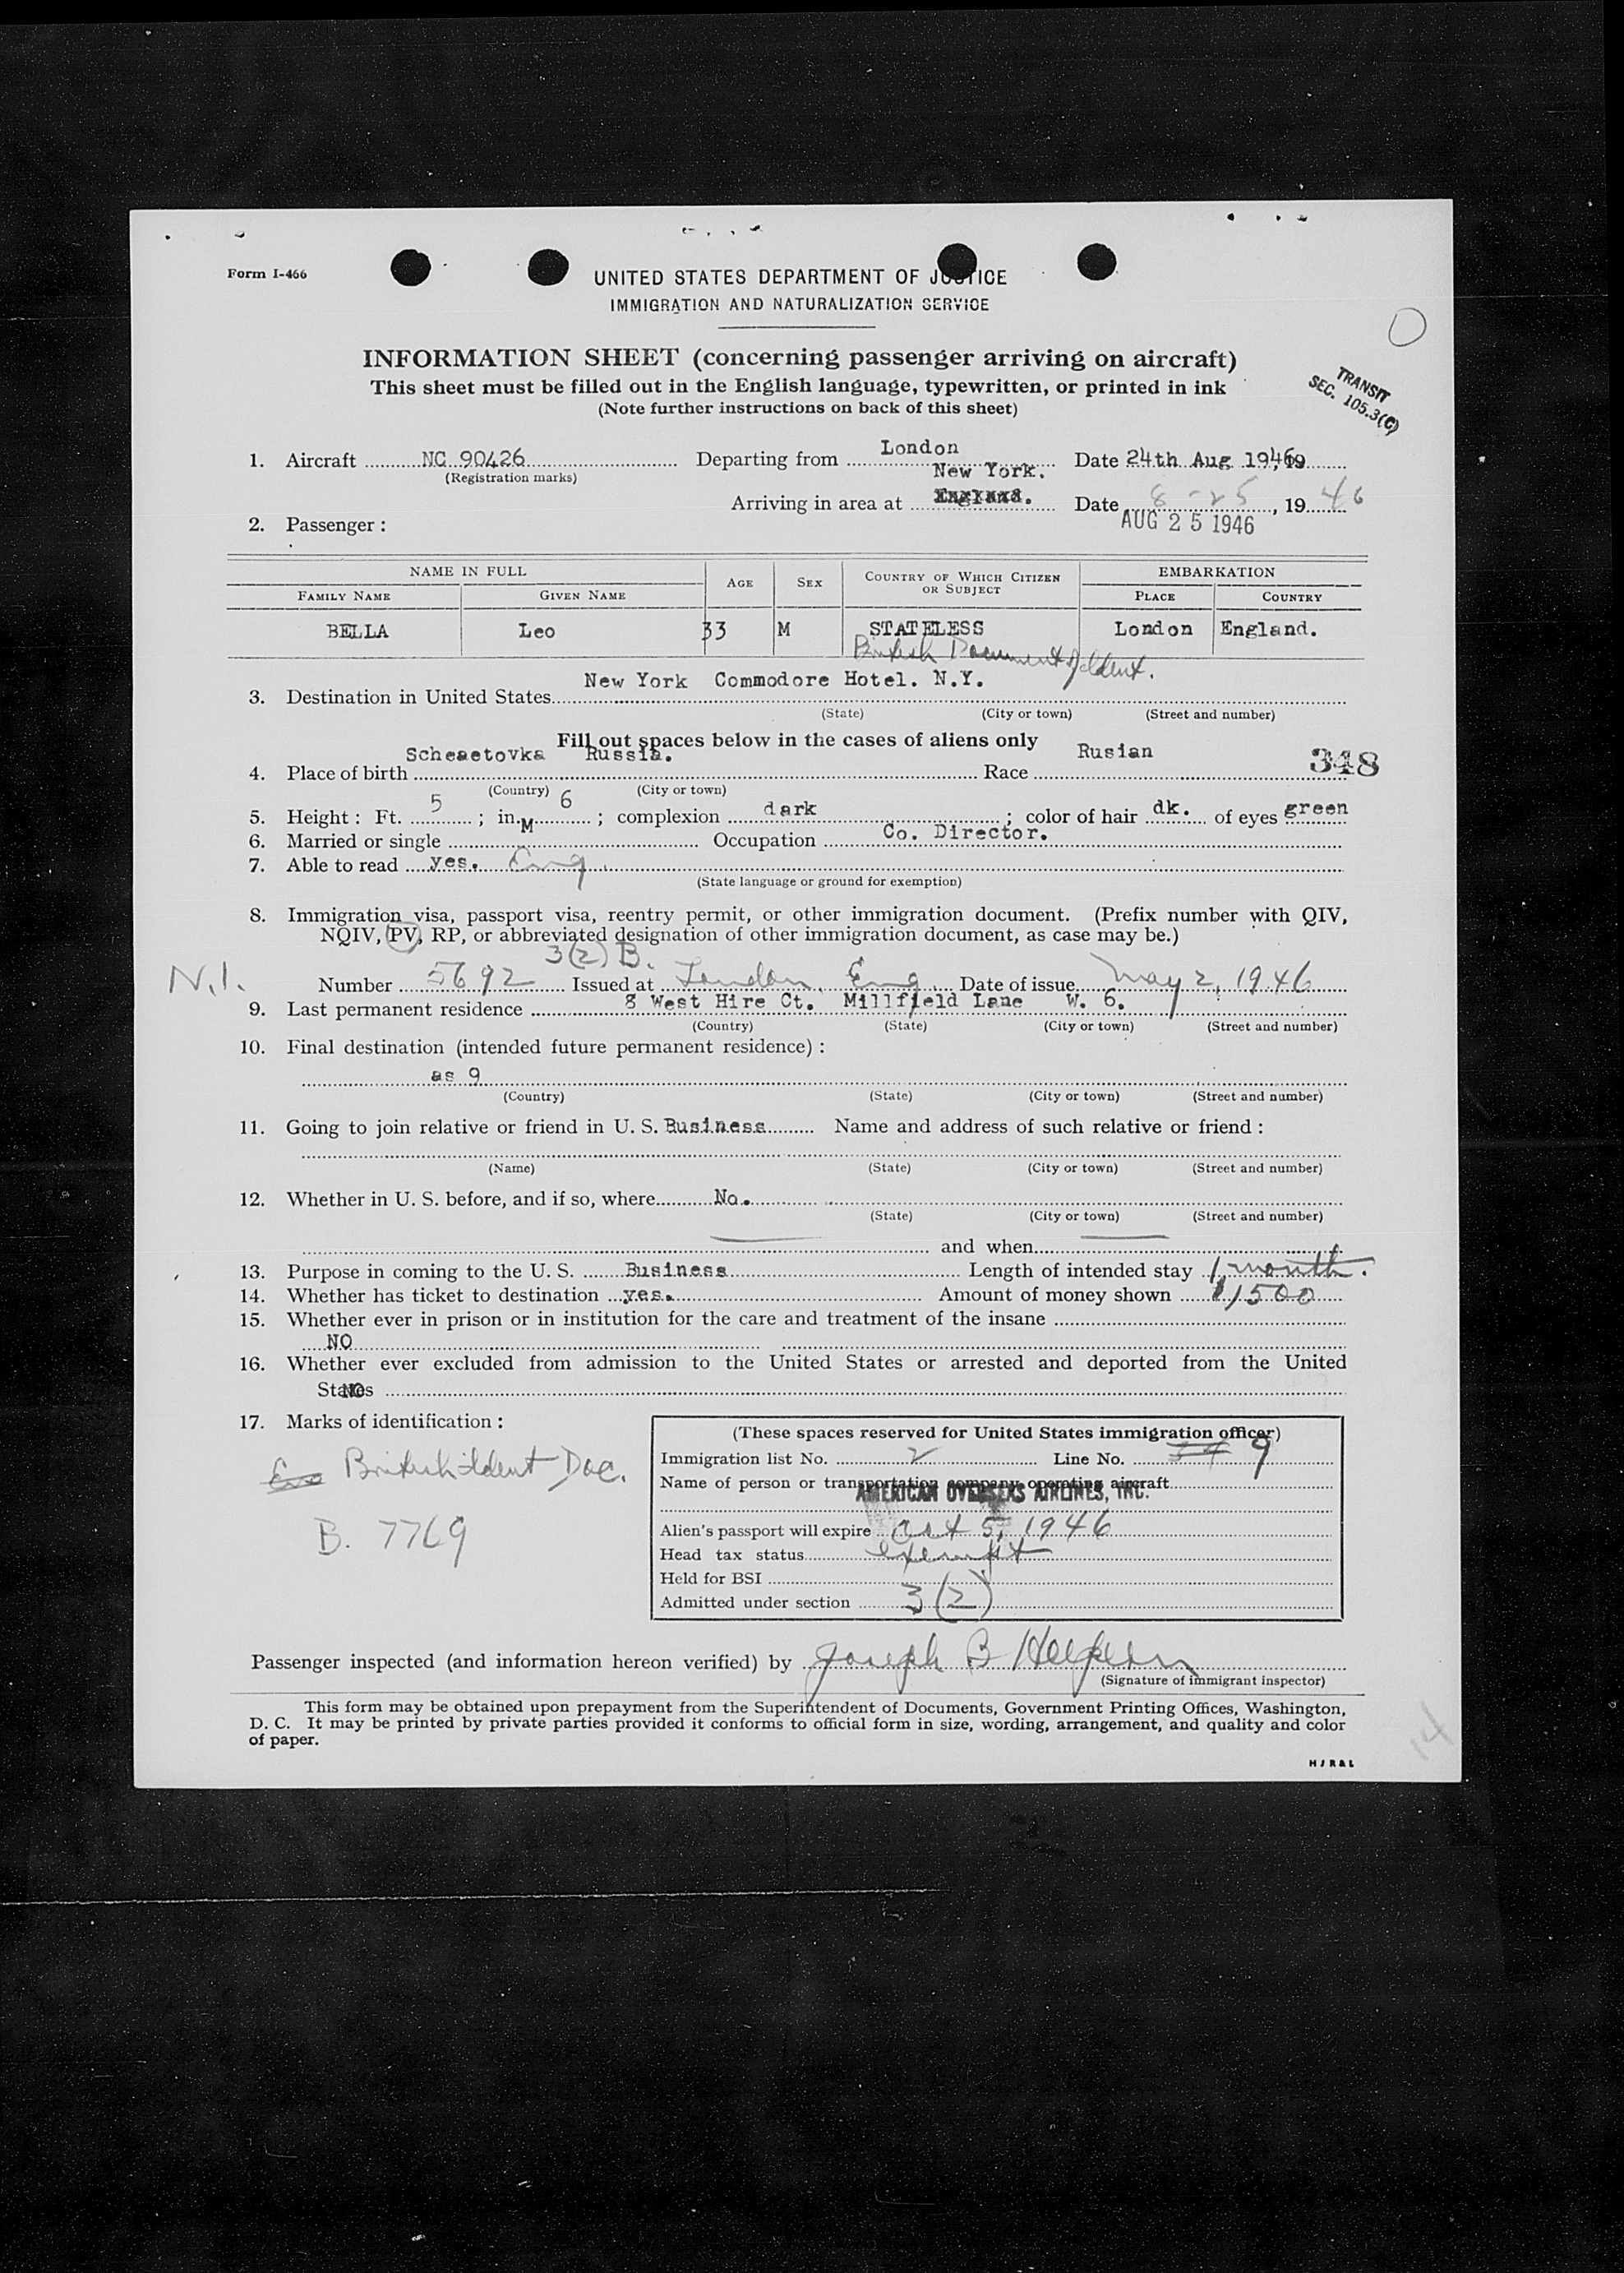 Form I-466
UNITED STATES DEPARTMENT OF JUSTICE
IMMIGRATION AND NATURALIZATION SERVICE
INFORMATION SHEET (concerning passenger arriving on aircraft)
This sheet must be filled out in the English language, typewritten, or printed in ink
(Note further instructions on back of this sheet)
TRANSIT
SEC. 105.3(C)
1. Aircraft NC 90426 Departing from London Date 24th Aug 1946, 19
(Registration marks)
New York.
Arriving in area at England. Date 8-25, 1946
AUG 25 1946
2. Passenger:
NAME IN FULL AGE SEX COUNTRY OF WHICH CITIZEN OR SUBJECT EMBARKATION
FAMILY NAME GIVEN NAME PLACE COUNTRY
BELLA Leo 33 M STATELESS London England.
British Document Ident.
3. Destination in United States New York Commodore Hotel. N.Y.
(State) (City or town) (Street and number)
Fill out spaces below in the cases of aliens only
4. Place of birth Scheaetovka Russia. Race Rusian
348
(Country) (City or town)
5. Height: Ft. 5; in. 6; complexion dark; color of hair dk. of eyes green
6. Married or single M Occupation Co. Director.
7. Able to read yes. Eng.
(State language or ground for exemption)
8. Immigration visa, passport visa, reentry permit, or other immigration document. (Prefix number with QIV,
NQIV, PV, RP, or abbreviated designation of other immigration document, as case may be.)
3(2) B.
N.I.
Number 5692 Issued at London, Eng. Date of issue May 2, 1946
9. Last permanent residence 8 West Hire Ct. Millfield Lane W. 6.
(Country) (State) (City or town) (Street and number)
10. Final destination (intended future permanent residence):
as 9
(Country) (State) (City or town) (Street and number)
11. Going to join relative or friend in U. S. Business Name and address of such relative or friend:
(Name) (State) (City or town) (Street and number)
12. Whether in U. S. before, and if so, where No.
(State) (City or town) (Street and number)
and when
13. Purpose in coming to the U. S. Business Length of intended stay 1 month.
14. Whether has ticket to destination yes. Amount of money shown $1,500
15. Whether ever in prison or in institution for the care and treatment of the insane
NO
16. Whether ever excluded from admission to the United States or arrested and deported from the United
States NO
17. Marks of identification:
British Ident Doc.
B. 7769
(These spaces reserved for United States immigration officer)
Immigration list No. 2 Line No. 9
Name of person or transportation company operating aircraft
AMERICAN OVERSEAS AIRLINES, INC.
Alien's passport will expire Oct 5, 1946
Head tax status exempt
Held for BSI
Admitted under section 3(2)
Passenger inspected (and information hereon verified) by Joseph B
(Signature of immigrant inspector)
This form may be obtained upon prepayment from the Superintendent of Documents, Government Printing Offices, Washington,
D. C. It may be printed by private parties provided it conforms to official form in size, wording, arrangement, and quality and color
of paper.
14
H J R & L